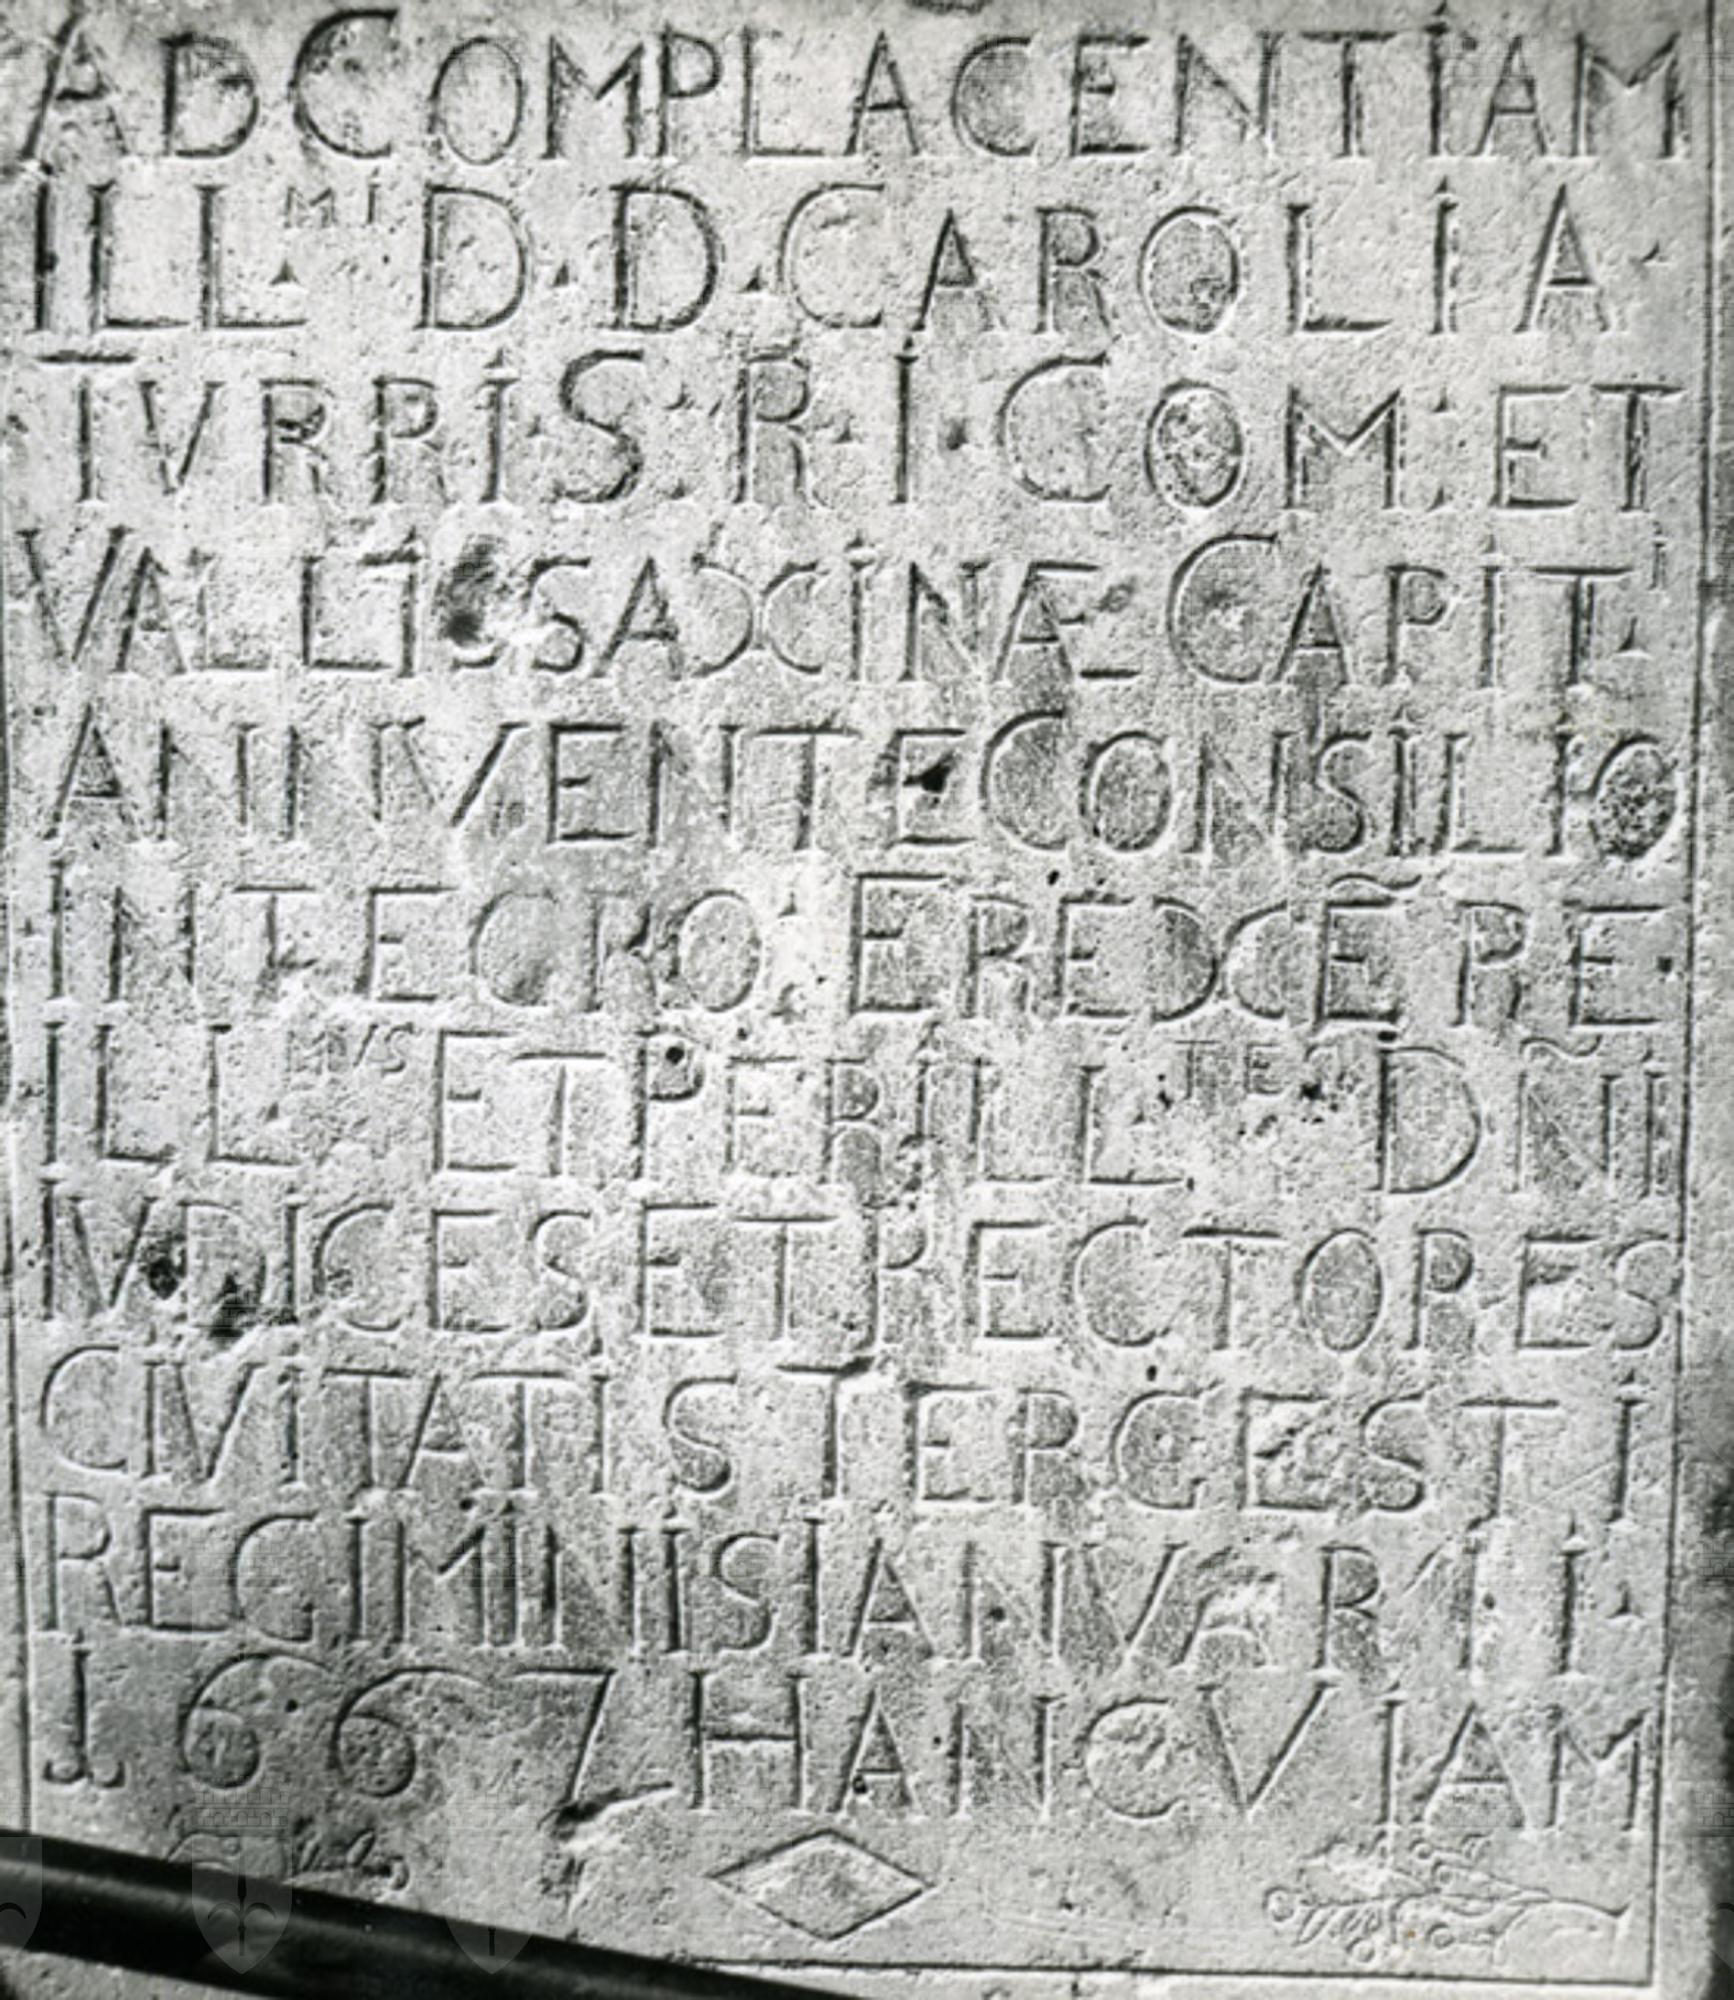 AD COMPLACENTIAM
ILL.MI D. D. CAROLI A.
TVRRI S. R. I. COM: ET
VALLISSAXINÆ CAPIT.I
ANNIVENTE CONSILIO
INTEGRO. EREXẼRE
ILL.MVS ET PERILL.TES DÑI
IVDICES ET RECTORES
CIVITATIS TERGESTI
REGIMINIS IANVARII.
1667 HANC VIAM